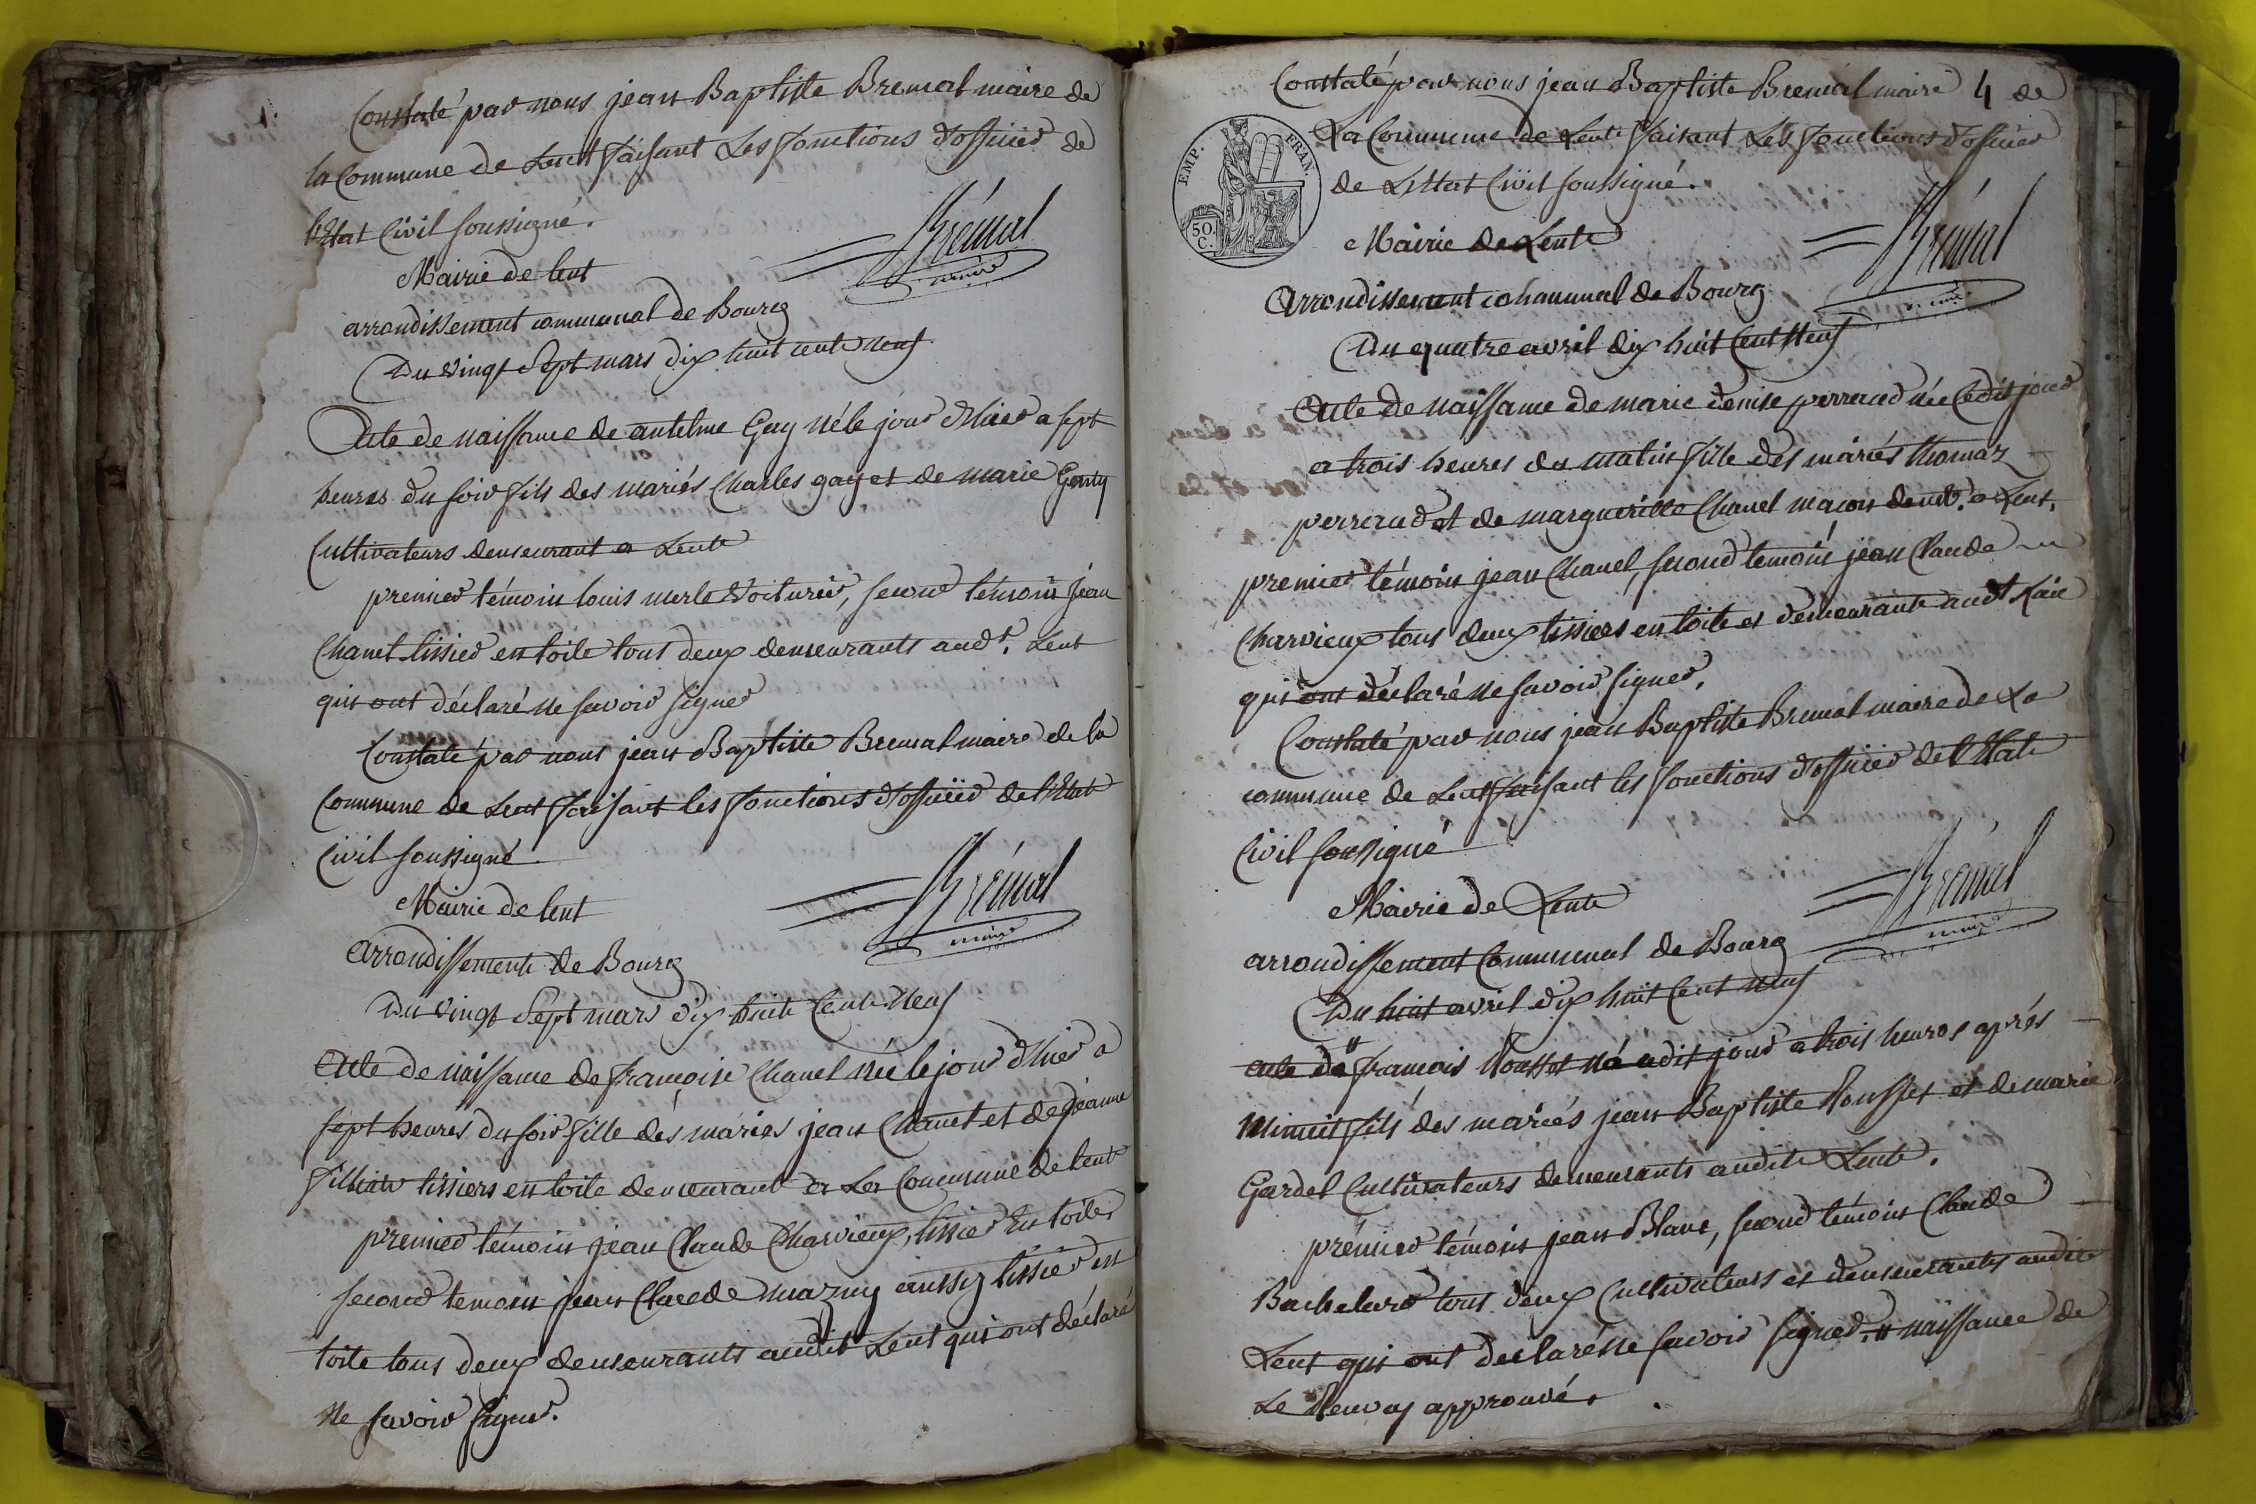 Constaté par nous jean Baptiste Bremal maire de
la Commune de Lent faisant Les fonctions d'officier de
l'Etat Civil soussigné.
Brémal
maire
Mairie de lent
arrondissement communal de Bourg
Du vingt Sept mars dix huit cent neuf
Acte de naissance de antelme Gay né le jour d'hier a sept
heures du soir fils des mariés Charles gay et de marie Gonty
Cultivateurs demeurant a Lent
premier témoin louis merle voiturier, second témoin jean
Chanel tissier en toile tous deux demeurants aud.t Lent
qui ont déclaré ne savoir signer
Constaté par nous jean Baptiste Bremal maire de la
Commune de Lent faisant les fonctions d'officier de l'Etat
Civil soussigné
Brémal
maire
Mairie de lent
arrondissement de Bourg
Du vingt Sept mars dix huit Cent Neuf
Acte de naissance de françoise Chanel née le jour d'hier a
sept heures du soir fille des mariés jean Chanel et de jeanne
tissiers en toile demeurant a La Commune de lent
premier témoin jean Claude Charvieux, tissier En toile
second temoin jean Claude mazuy aussy tissier en
toile tous deux demeurants audit Lent qui ont déclaré
Ne savoir signer.
4
Constaté par nous jean Baptiste Bremal maire de
La Commune de Lent faisant Les fonctions d'officier
de L'Etat Civil soussigné.
EMP. FRAN.
50.
C.
Brémal
maire
Mairie de Lent
arrondissement cohammal de Bourg
Du quatre avril dix huit Cent Neuf
Acte de naissance de marie denise perraud née Cedit jour
a trois heures du matin fille des mariés thomas
perraud et de margueritte Chanel maçon dem.t a Lent,
premier témoin jean Chanel, second temoin jean Claude
Charvieux tous deux tissiers en toile et demeurants audt
qui ont déclaré ne savoir signer,
Constaté par nous jean Baptiste Bremal maire de La
commune de Lent faisant les fonctions d'officier de l'Etat
Civil soussigné
Brémal
maire
Mairie de Lent
arrondissement Communal de Bourg
Du huit avril dix huit Cent neuf
acte de " françois Rousset né cedit jour a trois heures aprés
Minuit fils des mariés jean Baptiste Rousset et de marie
Gardel Cultivateurs demeurants audit Lent.
prémier témoin jean Blanc, second témoin Claude
Bachelard tous deux Cultivateurs et demeurants audit
Lent qui ont declaré ne savoir signer. " naissance de
Le Renvoy approuvé.